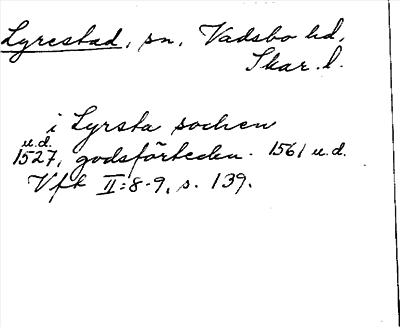 Lyrestad, sn, Vadsbo hd,
Skar. l.
i Lyrsta sochen
u.d.
1527, godsförteckn. 1561 u.d.
Vft II:8-9, s. 139.